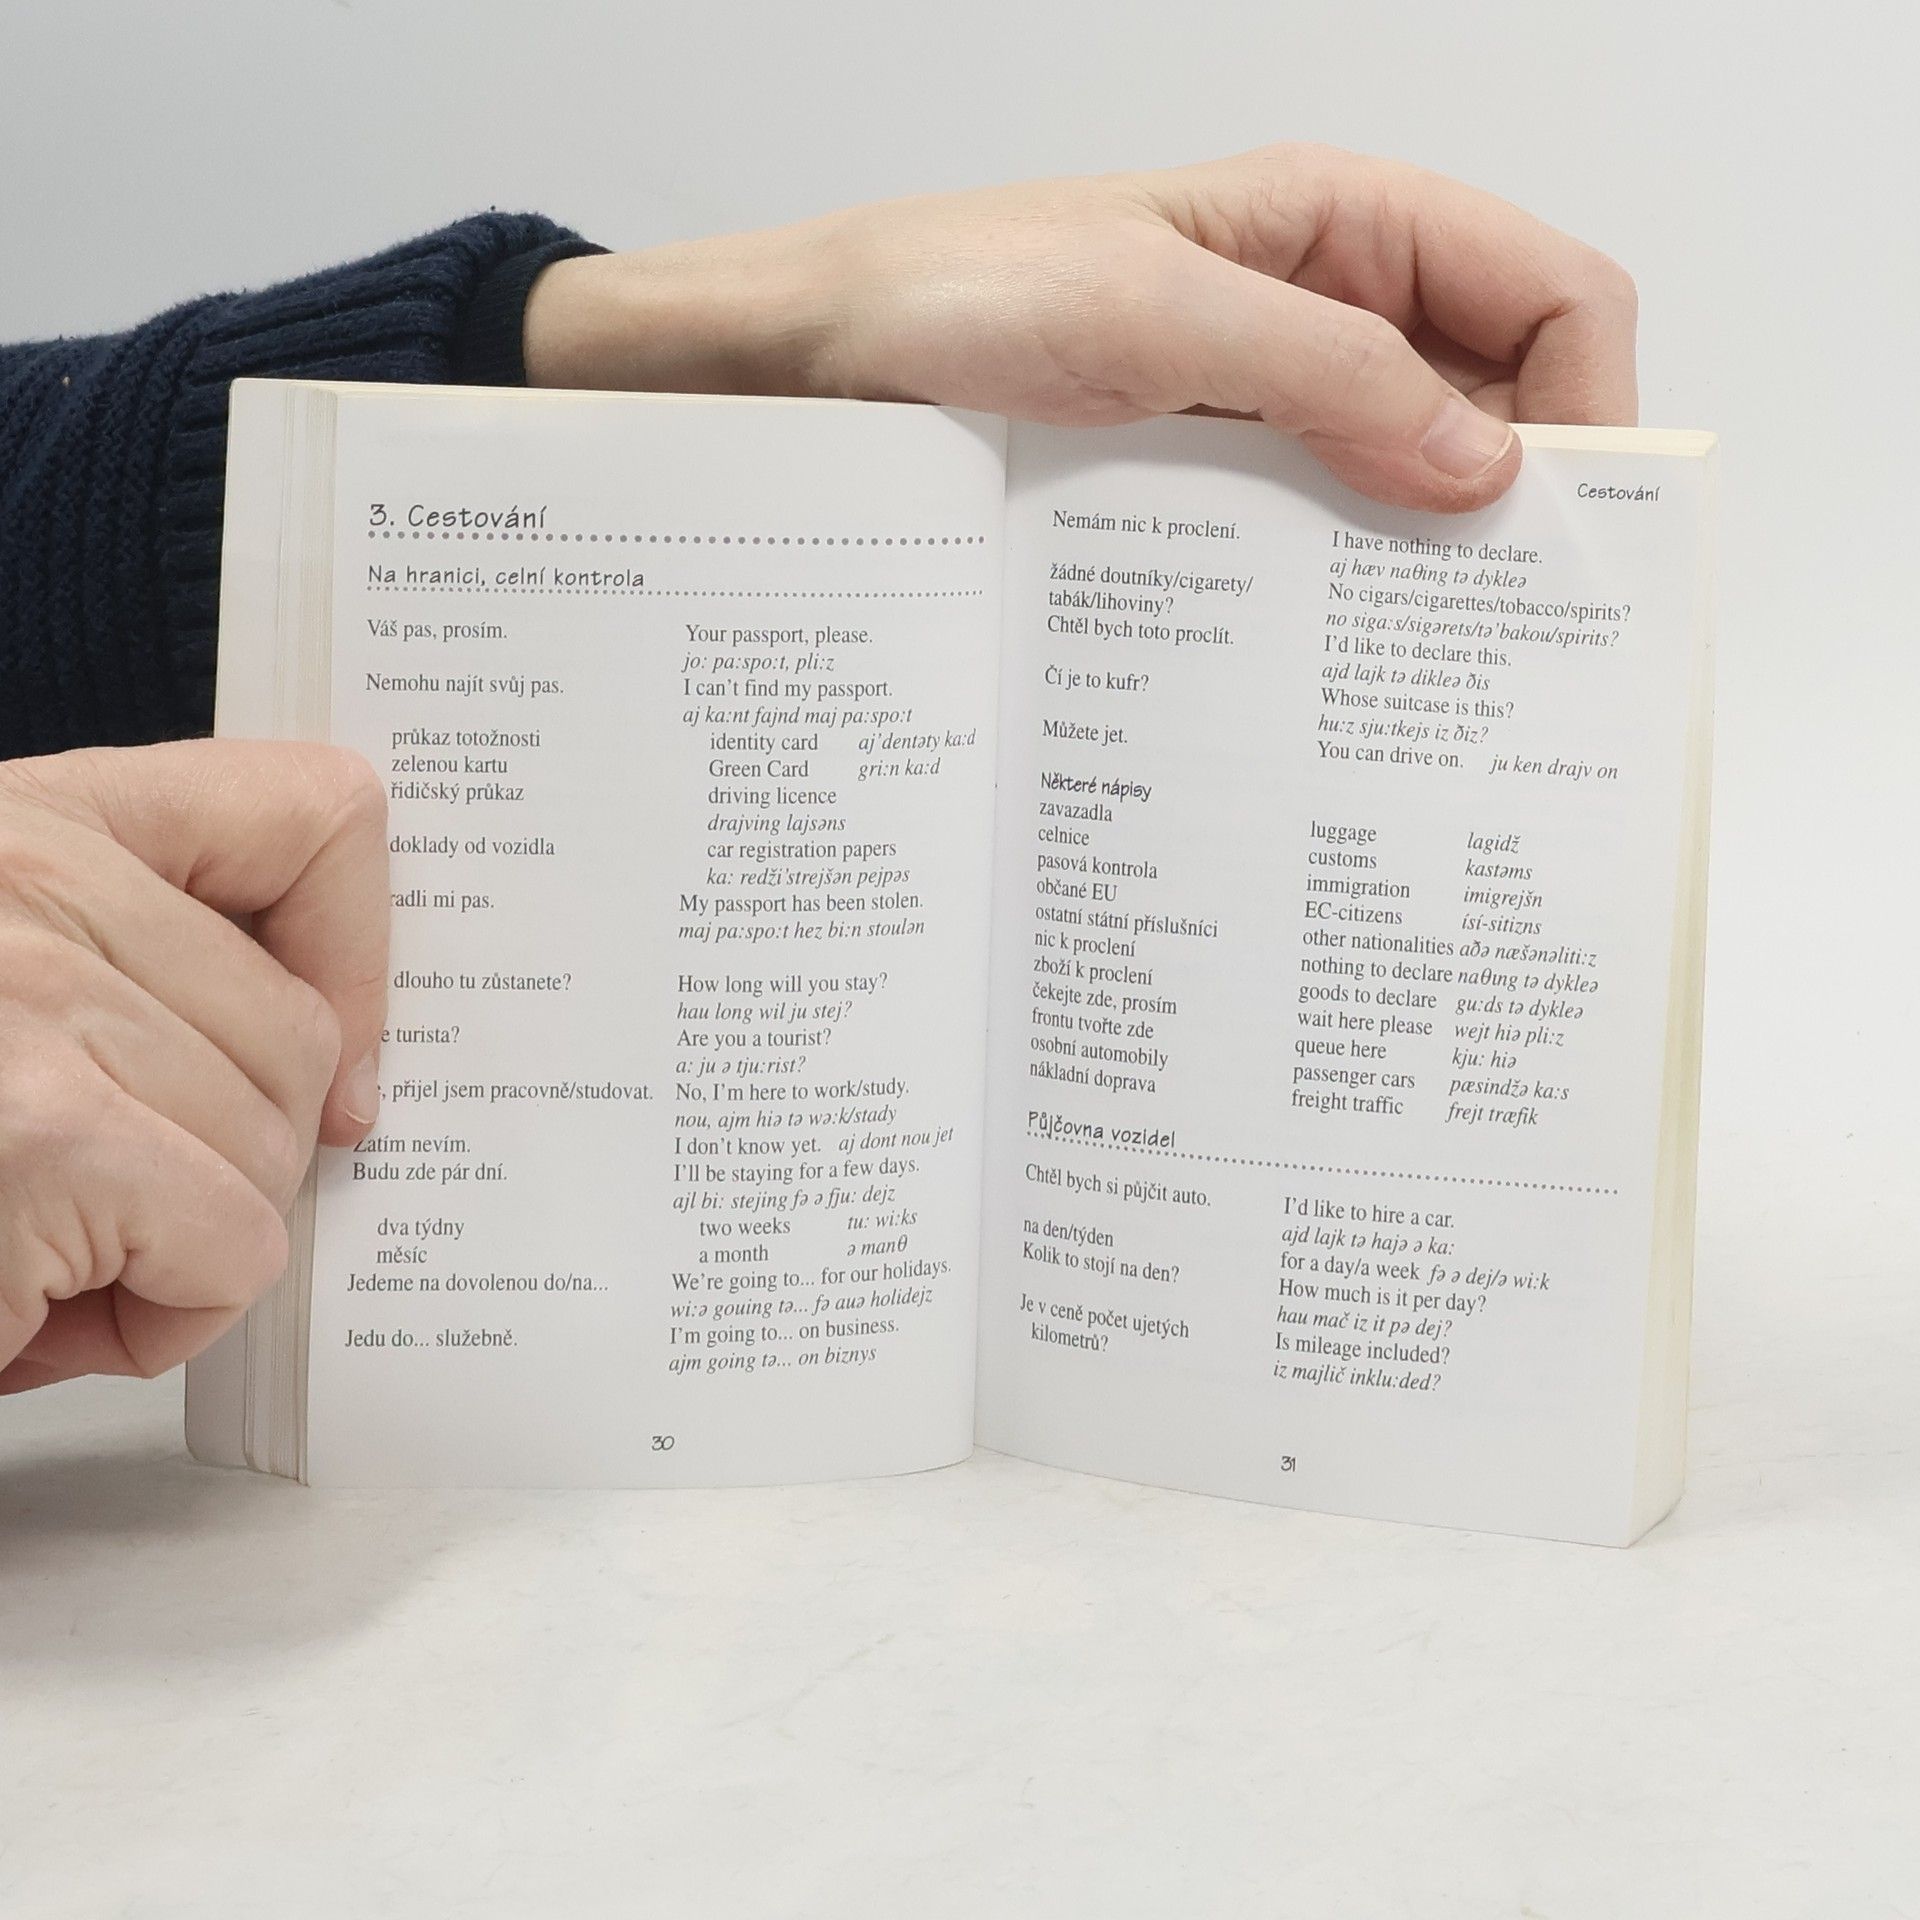 3. Cestování
Na hranici, celní kontrola
Váš pas, prosím. Your passport, please.
jo: pa:spo:t, pli:z
Nemohu najít svůj pas. I can't find my passport.
aj ka:nt fajnd maj pa:spo:t
průkaz totožnosti identity card aj'dentəty ka:d
zelenou kartu Green Card gri:n ka:d
řidičský průkaz driving licence
drajving lajsəns
doklady od vozidla car registration papers
ka: redži'strejšən pejpəs
mi pas. My passport has been stolen.
maj pa:spo:t hez bi:n stoulən
dlouho tu zůstanete? How long will you stay?
hau long wil ju stej?
turista? Are you a tourist?
a: ju ə tju:rist?
přijel jsem pracovně/studovat. No, I'm here to work/study.
nou, ajm hiə tə wə:k/stady
Zatím nevím. I don't know yet. aj dont nou jet
Budu zde pár dní. I'll be staying for a few days.
ajl bi: stejing fə ə fju: dejz
dva týdny two weeks tu: wi:ks
měsíc a month ə manθ
Jedeme na dovolenou do/na... We're going to... for our holidays.
wi:ə gouing tə... fə auə holidejz
Jedu do... služebně. I'm going to... on business.
ajm going tə... on biznys
30
Cestování
Nemám nic k proclení. I have nothing to declare.
aj hæv naθing tə dykleə
žádné doutníky/cigarety/ No cigars/cigarettes/tobacco/spirits?
tabák/lihoviny? no siga:s/sigərets/tə'bakou/spirits?
Chtěl bych toto proclít. I'd like to declare this.
ajd lajk tə dikleə ðis
Čí je to kufr? Whose suitcase is this?
hu:z sju:tkejs iz ðiz?
Můžete jet. You can drive on. ju ken drajv on
Některé nápisy
zavazadla luggage lagidž
celnice customs kastəms
pasová kontrola immigration imigrejšn
občané EU EC-citizens ísí-sitizns
ostatní státní příslušníci other nationalities aðə næšənəliti:z
nic k proclení nothing to declare naθıng tə dykleə
zboží k proclení goods to declare gu:ds tə dykleə
čekejte zde, prosím wait here please wejt hiə pli:z
frontu tvořte zde queue here kju: hiə
osobní automobily passenger cars pæsindžə ka:s
nákladní doprava freight traffic frejt træfik
Půjčovna vozidel
Chtěl bych si půjčit auto. I'd like to hire a car.
ajd lajk tə hajə ə ka:
na den/týden for a day/a week fə ə dej/ə wi:k
Kolik to stojí na den? How much is it per day?
hau mač iz it pə dej?
Je v ceně počet ujetých Is mileage included?
kilometrů? iz majlič inklu:ded?
31